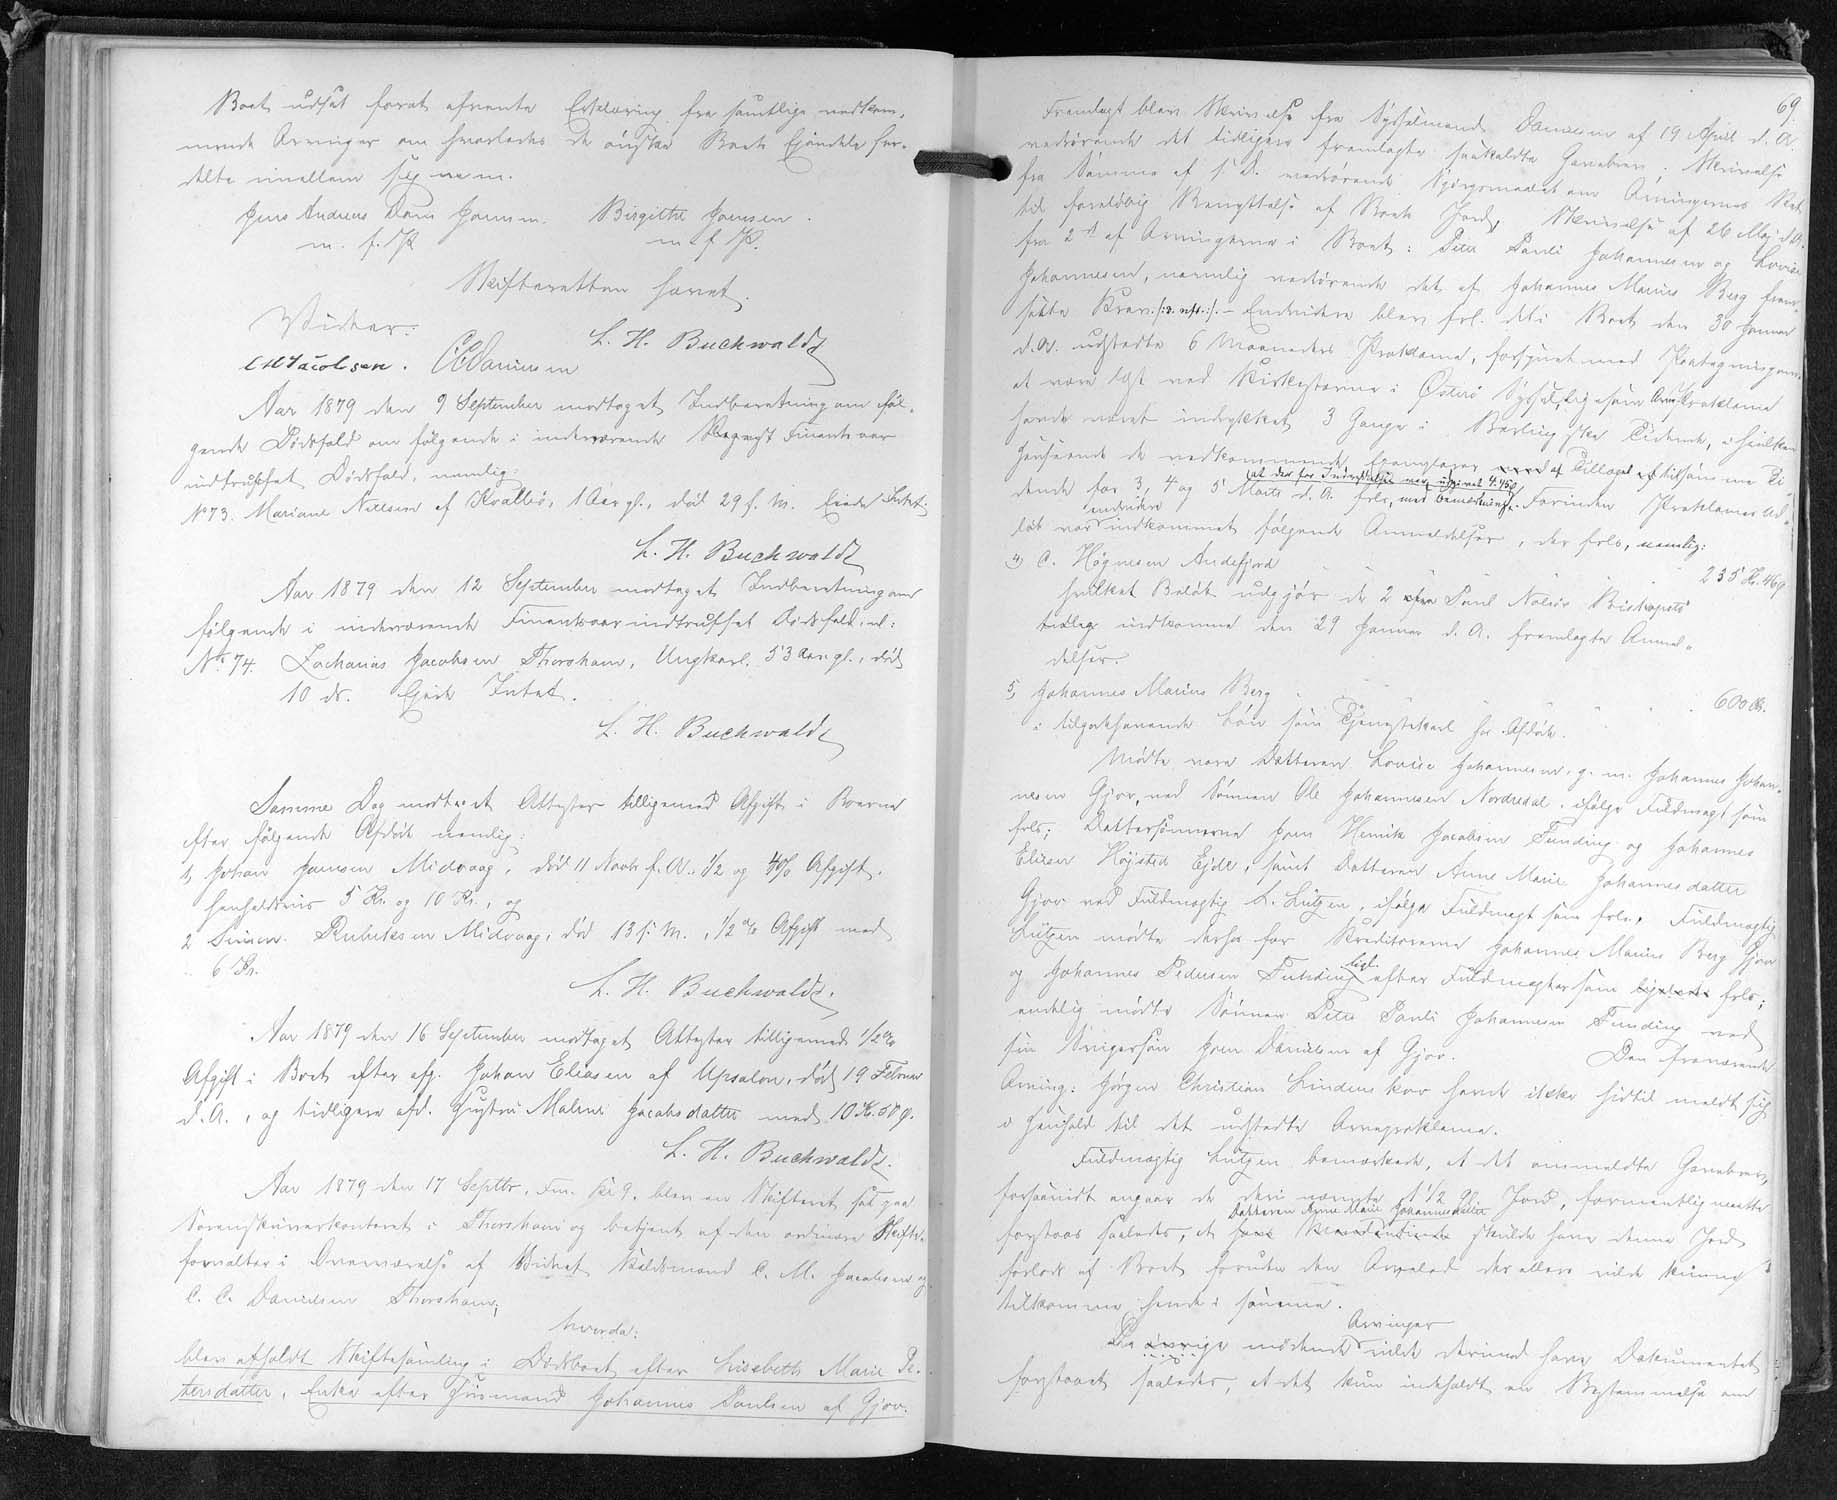 Boet udsat forat afvente Erklæring fra samtlige vedkom-
mende Arvinger om hvorledes de ønske Boets Ejendele for-
delte imellem sig m. m.
Jens Andreas Dam Joensen. Birgithe Joensen.
m. f. P. m. f. P.
Skifteretten hævet.
Vidner:
L. H. Buchwaldt
C M Jacobsen. C C Danielsen
Aar 1879 den 9 September modtaget Indberetning om føl-
gende Dødsfald om følgende i indeværende Finantsaar
indtruffet Dødsfald, nemlig:
No 73. Mariane Nielsen af Kvalbø, 1 Aar gl., død 29 f. M. Ejede Intet.
L. H. Buchwaldt
Aar 1879 den 12 September modtaget Indberetning om
følgende i indeværende Finantsaar indtruffet Dødsfald, nl:
No 74. Zacharias Jacobsen Thorshavn, Ungkarl, 53 Aar gl., død
10 ds. Ejede Intet.
L. H. Buchwaldt
Samme Dag modtaget Attester tilligemed Afgift i Boerne
efter følgende Afdøde nemlig:
1, Johan Joensen Midvaag, død 11 Novb. f. A., 1/2 og 4% Afgift.
henholdsvis 5 Kr. og 10 Kr., og
2 Simon Rubeksen Midvaag, død 13 f. M., 1/2 % Afgift med
6 Kr.
L. H. Buchwaldt.
Aar 1879 den 16 September modtaget Attester tilligemed 1/2 %
Afgift i Boet efter afg. Johan Eliasen af Upsalon, død 19 Februar
d. A., og tidligere afd. Hustru Malene Jacobsdatter med 10 Kr. 50 Ø.
L. H. Buchwaldt.
Aar 1879 den 17 Septbr, Fm. Kl 9, blev en Skifteret sat paa
Sorenskriverkontoret i Thorshavn og betjent af den ordinære Skifte-
forvalter i Overværelse af Vidnet Kaldsmand C. M. Jacobsen og
C. C. Danielsen Thorshavn,
hvorda:
blev afholdt Skiftesamling i Dødsboet efter Lisebeth Marie Pe-
tersdatter, Enke efter Huusmand Johannes Poulsen af Gjov.
69.
Fremlagt blev Skrivelse fra Sysselmand Danielsen af 19 April d. A.
vedrørende det tidligere fremlagte saakaldte Gavebrev; Skrivelse
fra Samme af s. D. vedrørende Spørgsmaalet om Arvingernes Ret
til foreløbig Benyttelse af Boets Jord, Skrivelse af 26 Maj d. A.
fra 2de af Arvingerne i Boet: Peter Pauli Johannesen og Lovise
Johannesen, nemlig vedrørende det af Johannes Marius Berg frem-
satte Krav. - Endvidere blev frl. det i Boet den 30 Januar
d. A. udstedte 6 Maaneders Proklama, forsynet med Paategning om
at være læst ved Kirkestævne i Østerø Syssel, ligesom Proklama
havde været indrykket 3 Gange i Berlingske Tidende, i hvilken
Henseende de vedkommende Exemplarer af Tillæget til samme Ti-
at der for Indrykkelse var udgivet
dende for 3, 4 og 5 Marts d. A. frls, med Bemærkning. Forinden Proklamas Ud-
endvidere
løb var indkommet følgende Anmeldelser, der frls, nemlig:
4) C. Høgnesen Andefjord 235 Kr. 46 Ø
hvilket Beløb udgjør de 2 Poul Nolsøe
indkomne den 29 Januar d. A. fremlagte Anmel-
delser.
5, Johannes Marius Berg 600 Kr.
i tilgodehavende Løn som Tjenestekarl hos Afdøde.
Mødte vare Datteren Lovise Johannesen, g. m. Johannes Johan-
nesen Gjov, ved Sønnen Ole Johannesen Nordredal, ifølge Fuldmagt som
frls; Dattersønnerne Joen Henrik Jacobsen Funding og Johannes
Eliasen Højsted Ejde, samt Datteren Anne Marie Johannesdatter
Gjov ved Fuldmægtig L. Lützen, ifølge Fuldmagt som frls. Fuldmægtig
Lützen mødte derhos for Kreditorerne Johannes Marius Berg Gjov
ligl.
og Johannes Pedersen Funding efter Fuldmagter som frls;
endelig mødte Sønnen Peter Pauli Johannesen Funding ved
sin Svigersøn Joen Danielsen af Gjov. Den fraværende
Arving: Jørgen Christian Lindenskov havde ikke hidtil meldt sig
i Henhold til det udstedte Arveproklama.
Fuldmægtig Lützen bemærkede, at det anmeldte Gavebrev,
forsaavidt angaar de deri nævnte 1 1/2 Gl. Jord, formentlig maatte
Datteren Anne Marie Johannesdatter
forstaaes saaledes, at skulde have denne Jord
forlods af Boet foruden den Arvelod der ellers vilde kunne
tilkomme hende i samme.
Arvinger
De øvrige mødende vilde derimod have Dokumentet
forstaaet saaledes, at det kun indeholdt en Bestemmelse om